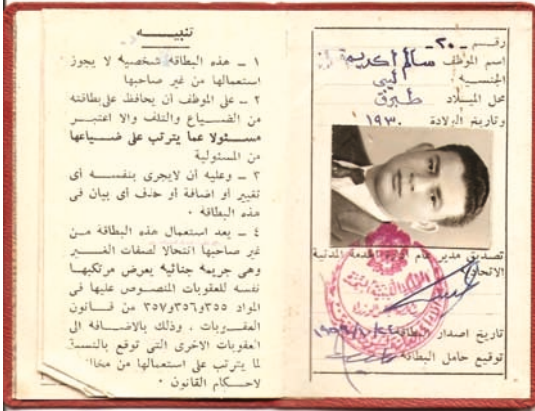 رقم - ٢٠ -
اسم الموظف سالم اكريم
الجنسية ليبي
محل الميلاد طبرق
وتاريخ الولادة ١٩٣٠
تصديق مدير عام الخدمة المدنية
الاتحادية
تاريخ اصدار البطاقة
توقيع حامل البطاقة
تنبيـــه
١ ـ هذه البطاقة شخصية لا يجوز
استعمالها من غير صاحبها
٢ ـ على الموظف أن يحافظ على بطاقته
من الضياع والتلف والا اعتبر
مسئولا عما يترتب على ضياعها
من المسئولية
٣ ـ وعليه أن لايجرى بنفسه أى
تغيير أو اضافة أو حذف أى بيان فى
هذه البطاقة ٠
٤ ـ يعد استعمال هذه البطاقة من
غير صاحبها انتحالا لصفات الغير
وهى جريمة جنائية يعرض مرتكبها
نفسه للعقوبات المنصوص عليها فى
المواد ٣٥٥و٣٥٦و٣٥٧ من قانون
العقوبات ، وذلك بالاضافة الى
العقوبات الاخرى التى توقع بالنسبة
لما يترتب على استعمالها من
لاحكام القانون ٠